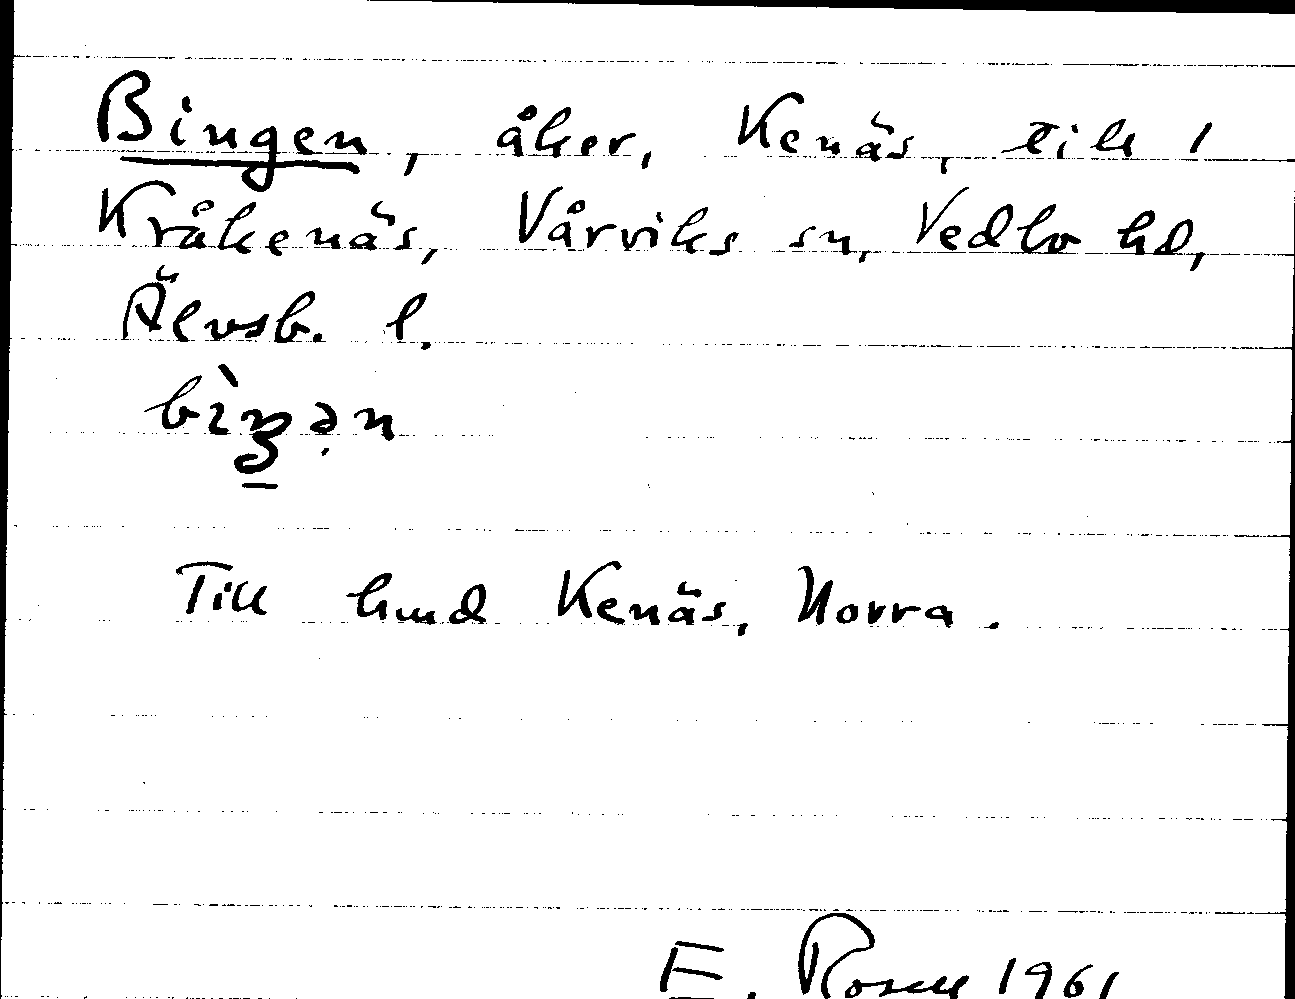 Bingen, åker, Kenäs, till 1
Kråkenäs, Vårviks sn, Vedbo hd,
Älvsb. l.
Till hmd Kenäs, Norra.
E. Rosell 1961